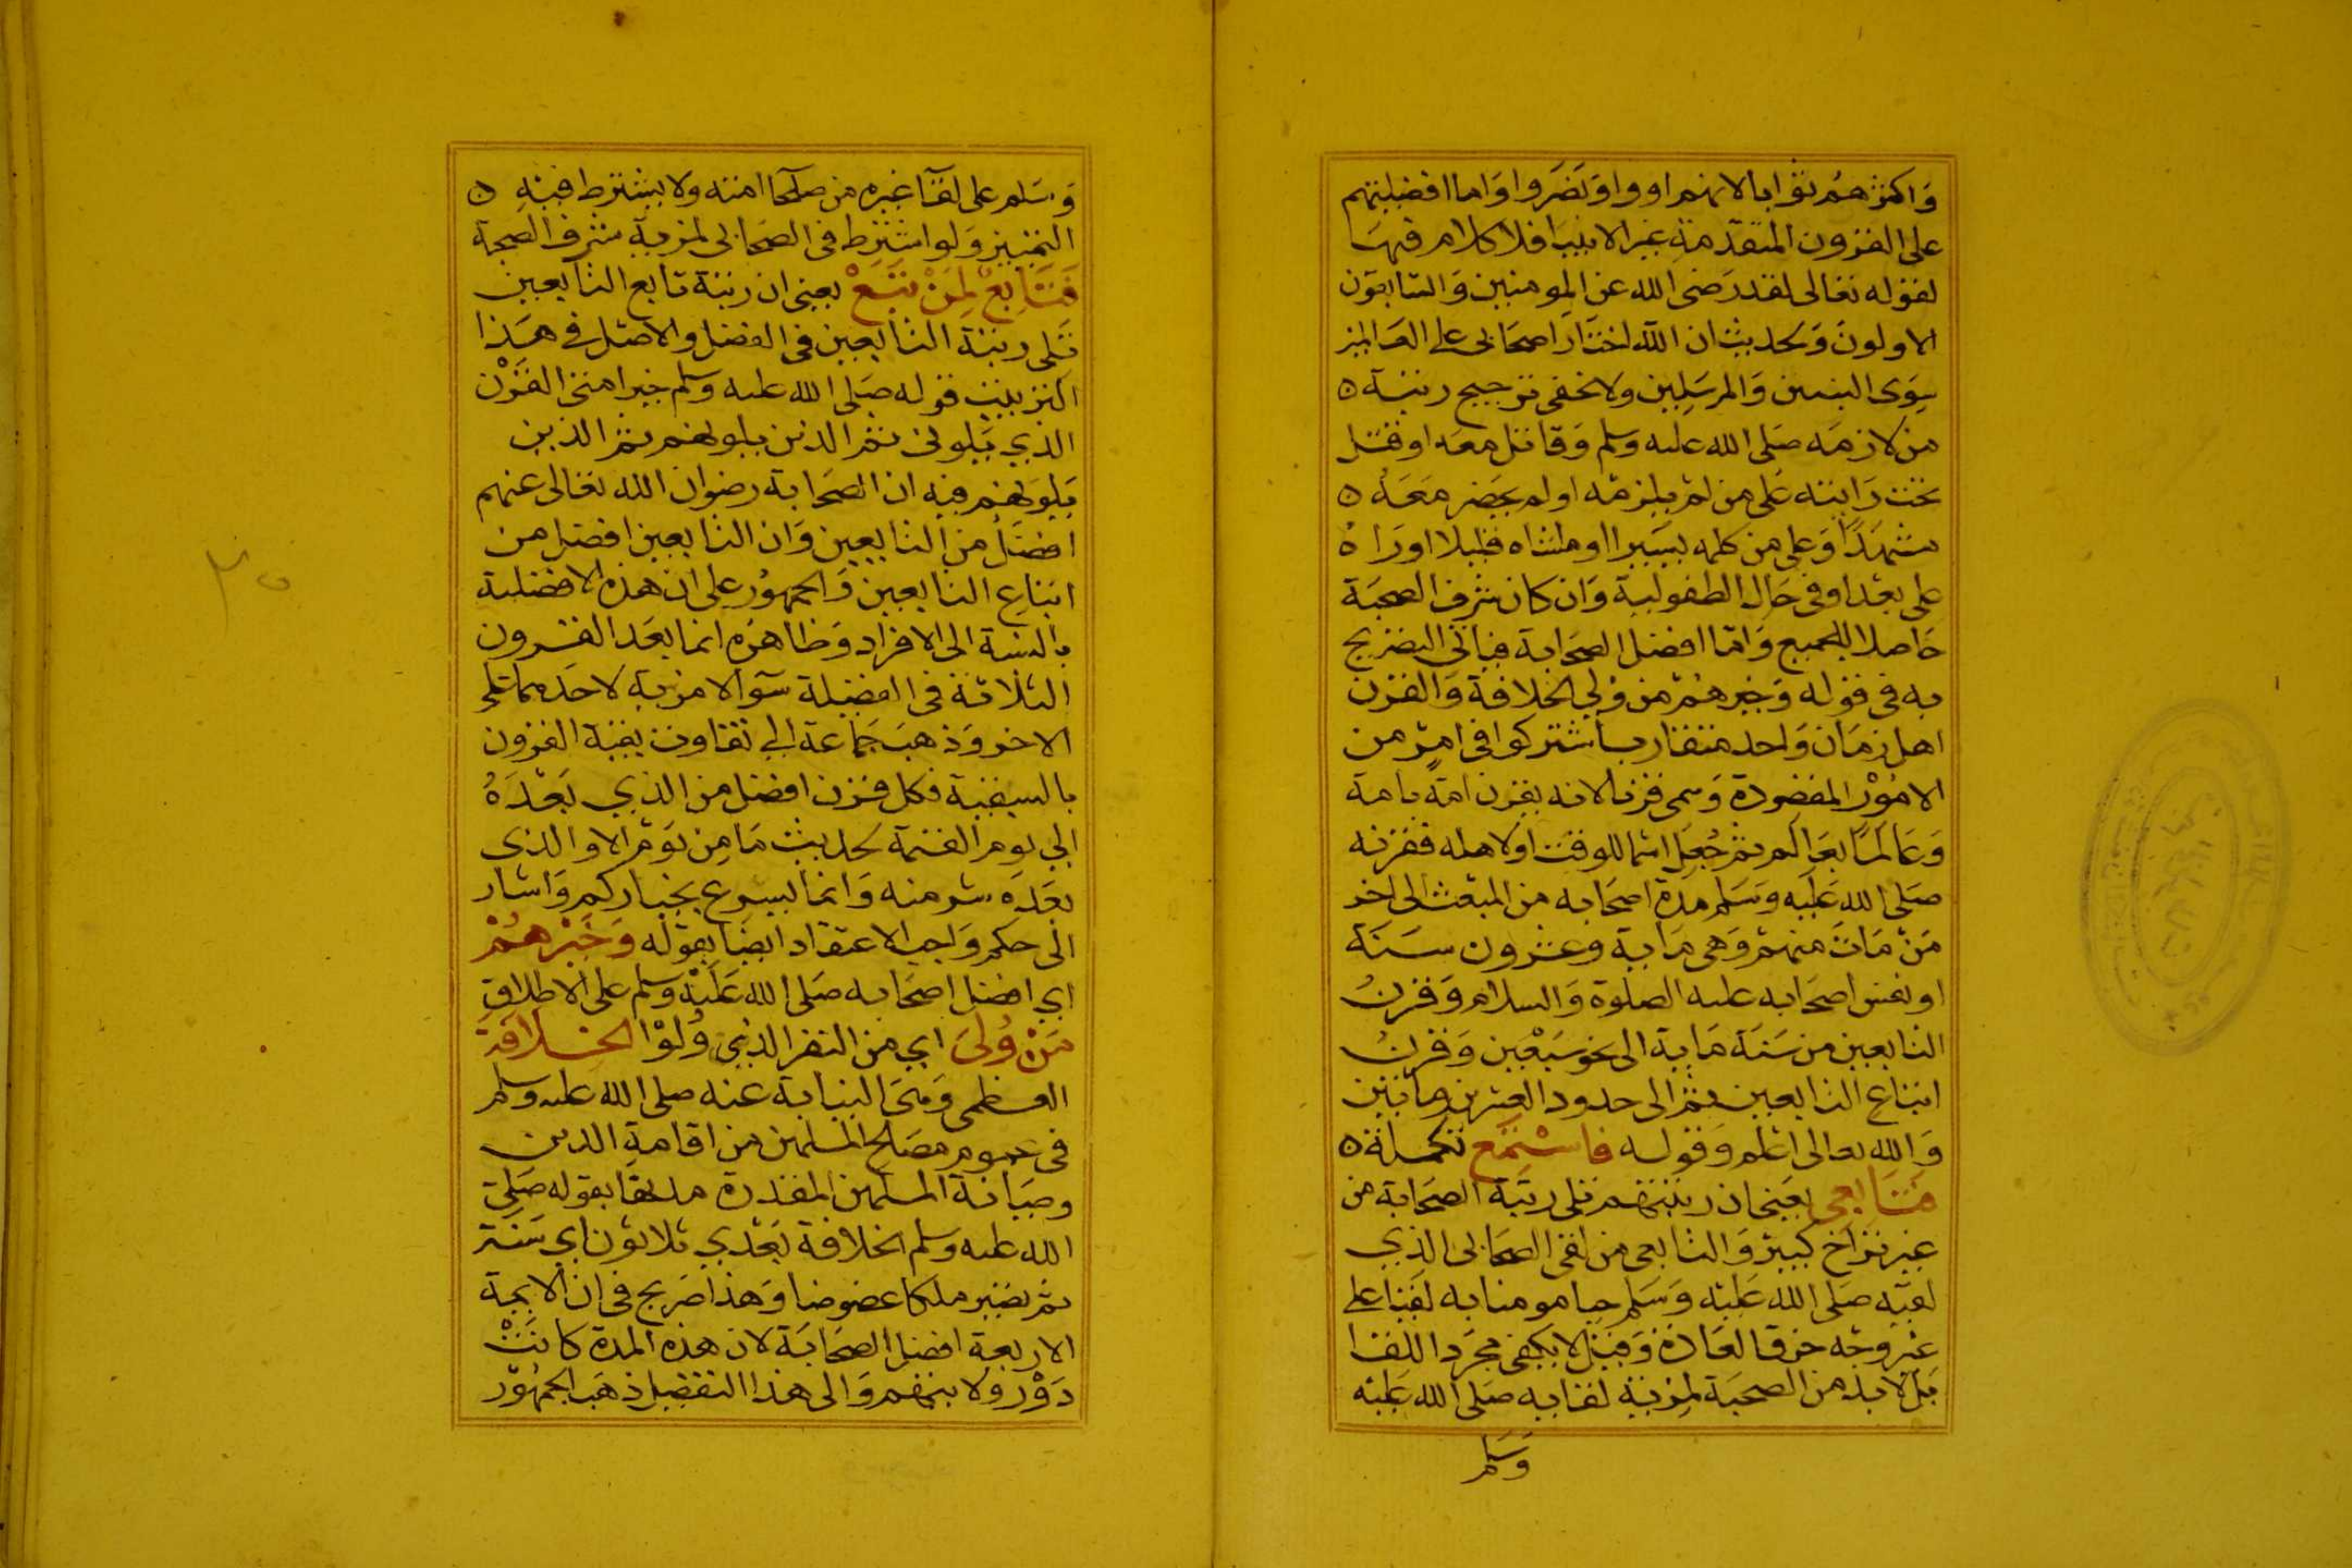 وَاكثرهُم ثوابا لانهم اووا ونَصَروا وَاما افضليتهم
على القرون المتقدّمة غير الانبيا فلا كلام فيهَا
لقوله تعالى لقد رَضى الله عن المومنين وَالسّابقون
الاولون وَكحديث ان الله اختار اصحَابى على العَالمين
سِوَى النبيين وَالمرسَلين ولا يخفى ترجيح رتبة ه
من لازمَه صَلى الله عليه وسلم وَقاتل معَه او قتل
تحت رَايته عَلى من لم يلزمْه او لم يحضر معَهُ ه
مشهَدًا وَعلى من كلمه يسيرا او ماشاه قليلا او رَاهُ
على بعْد او فى حَال الطفولية وَان كان شرف الصحبَة
حَاصلا للجميع وَامّا افضل الصحَابة فياتى التصريح
به فى قوله وَخيرهُمْ من وُلي الخلافة وَالقرن
اهل زمَان وَاحد متقارب اشتركوا فى امْر من
الامُوْر المقصُودة وَسمى قرنا لانه يقرن امة بامة
وَعَالمًا بعَالم ثم جُعِل اسما للوقت او لاهله فقرنه
صَلى الله عَليْه وَسَلم مدة اصحَابه من المبعث الى اخر
مَنْ مَاتَ منهمْ وَهى مَاية وعشرون سَنَة
او نفس اصحَابه عليه الصلوة وَالسلام وَقرنُ
التابعين من سَنَة مَاية الى نحو سَبْعين وَقرنُ
اتباع التابعين ثم الى حدود العشرين ومَاتين
وَالله تعالى اعْلم وَقوله فاسْتمع تكملة ه
فتَابعى يعَنى ان رتبتهم تلى رتبَة الصحَابة من
غير تراخ كبير وَالتابعى من لقى الصحَابى الذِي
لقيه صَلى الله عَليْه وَسَلم حيا مومنا به لقيا على
غير وجْه خرق العَادة وَقيل لا يكفى مجَرد اللقا
بَل لابد من الصحبَة لمزية لقايه صَلى الله عَليْه
وَسَلم
وَسَلم على لقآ غيره من صلحا امته ولا يشترط فيه ه
التمييز وَلو اشترط فى الصحَابى لمزية شرف الصحبة
فَتَابعٌ لِمَنْ تَبَعْ يعنى ان رتبة تابع التابعين
تلى رتبة التابعين فى الفضل والاصْل في هَذا
الترتيب قوله صَلى الله عليه وسلم خير امتى القَرْن
الذي يَلونى ثم الذين يلونهم ثم الذين
يَلوَنهم فيه ان الصحَابة رضوان الله تعَالى عنهم
افضَل من التابعين وَان التابعين افضل من
اتباع التابعين وَالجمهُور على ان هذه الافضلية
بالنسبة الى الافراد وَظاهرَه انما بعَد القرون
الثلاثة فى الفضيلة سَوآ لا مزية لاحدهما على
الاخر وَذهبَ جَماعَة الي تفاوت بقية القرون
بالسبقية فكل قرن افضل من الذي بَعْدَهُ
الي يوم القيمة كحديث مَا مِن يَوْم الا والذى
بعَدَه شر منه وَانما يسرع بخياركم وَاشار
الى حكم وَاجب الاعتقاد ايضًا بقوله وَخَيرهُمْ
اي افضل اصحَابه صَلى الله عَليْه وسلم على الاطلاق
مَنْ وُلىَ اي من النفر الذي وُلوْا الخلافة
العظمى وَهىَ النيابة عنه صلى الله عليه وسلم
فى عموم مصَالح المسلمين من اقامة الدين
وصيَانة المسلمين المقدرة مدتها بقوله صَلى
الله عليه وسلم الخلافة بَعْدي ثلاثون اي سَنَة
ثم تصير ملكا عضوضا وَهذا صَريح فى ان الايمة
الاربعة افضل الصحَابَة لان هذه المدة كانَتْ
دَوْر ولايتهم وَالى هذا التفضيل ذهَب الجمهُوْر